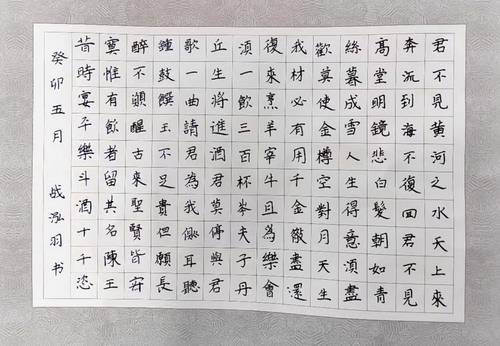 君不見黃河之水天上來
奔流到海不復回君不見
高堂明鏡悲白髮朝如青
絲暮成雪人生得意須盡
歡莫使金樽空對月天生
我材必有用千金散盡還
復來烹羊宰牛且為樂會
須一飲三百杯岑夫子丹
丘生將進酒君莫停與君
歌一曲請君為我側耳聽
鐘鼓饌玉不足貴但願長
醉不願醒古來聖賢皆寂
寞惟有飲者留其名陳王
昔時宴平樂斗酒十千恣
癸卯五月 战泓羽书